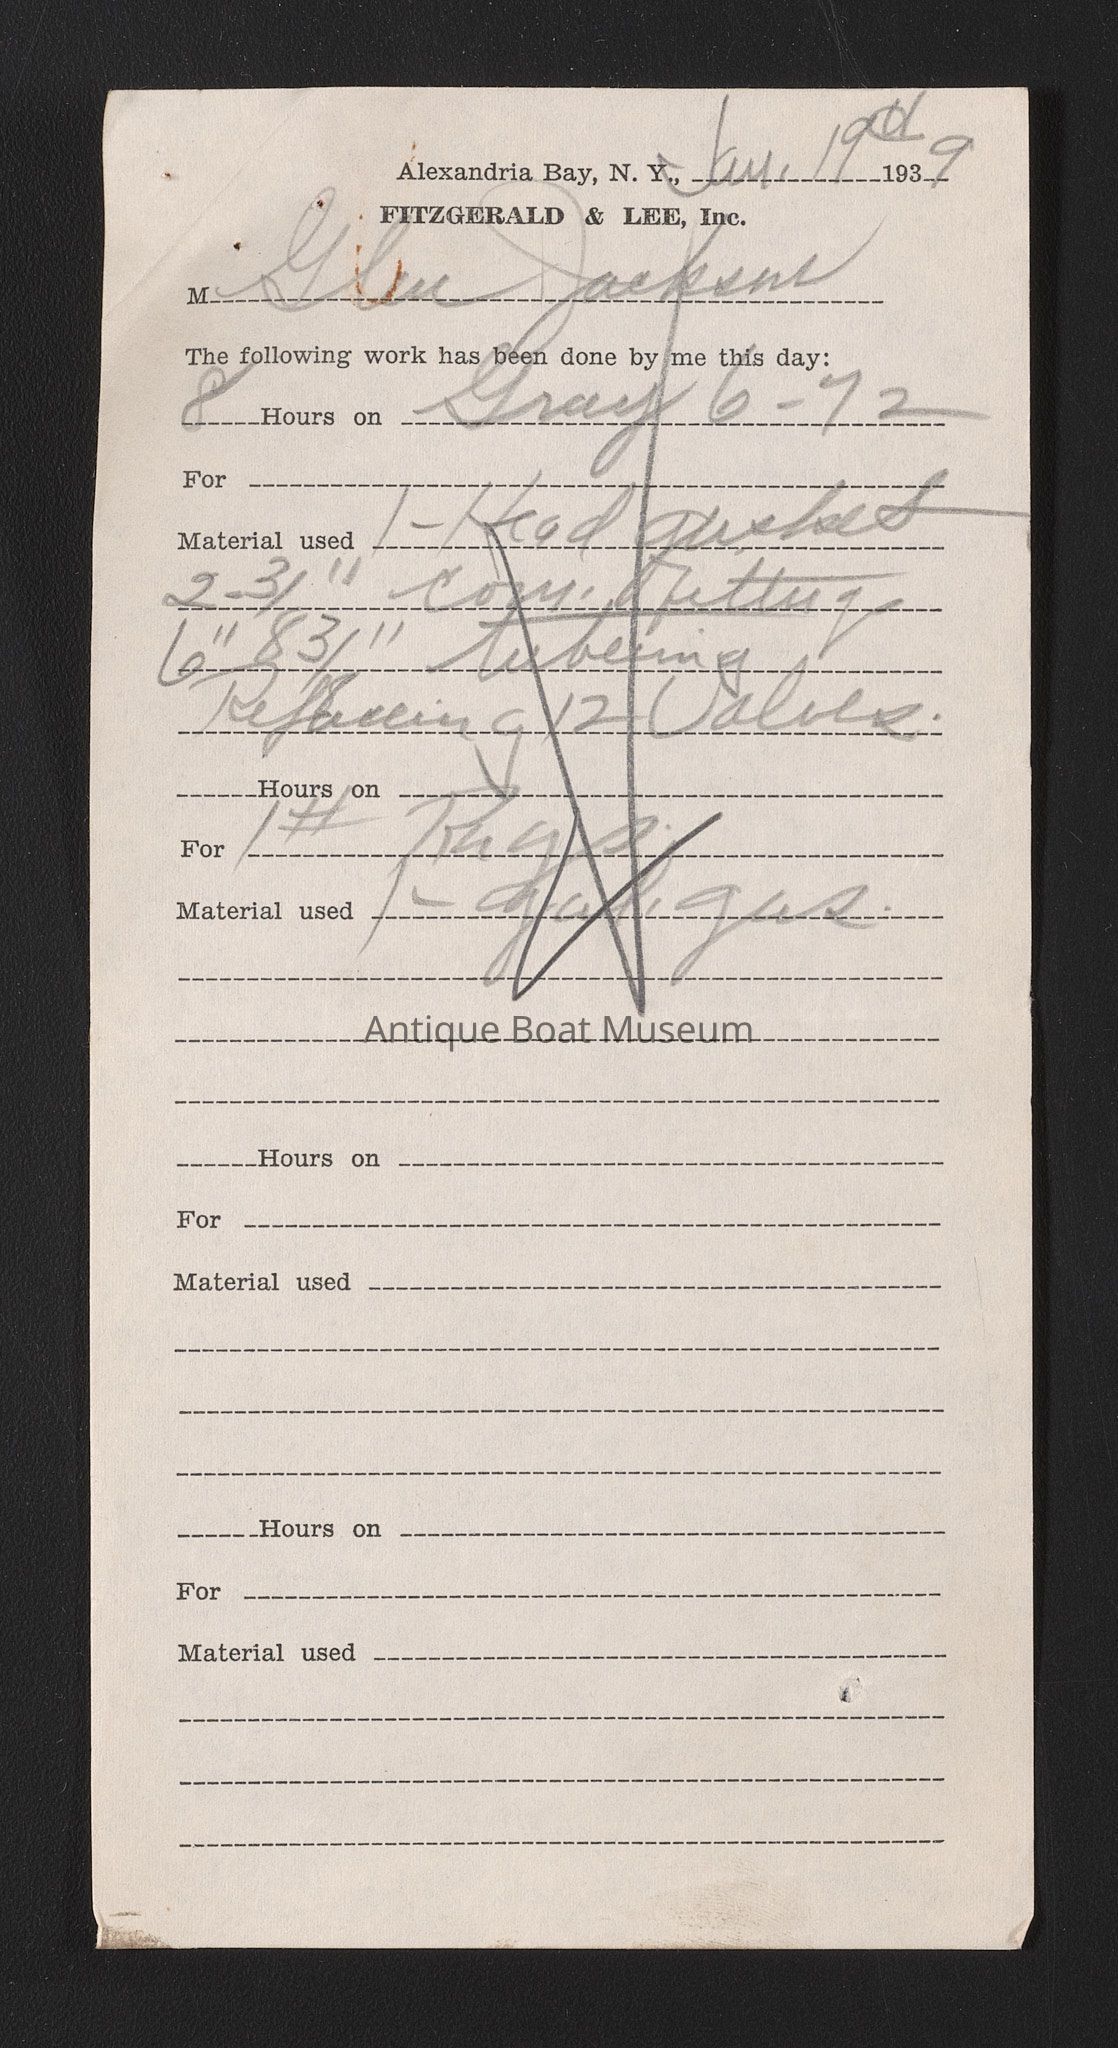 Alexandria Bay, N. Y., Jan. 19th 1939
FITZGERALD & LEE, Inc.
M Glen Jackson
The following work has been done by me this day:
8 Hours on Gray 6-72
For
Material used 1 - Head gasket
2 - 3/8" com. fitting
6" 3/8" tubeing
Refaceing 12 Valves.
Hours on
For 1 # Rags.
Material used 1 - gal. gas.
Antique Boat Museum
Hours on
For
Material used
Hours on
For
Material used